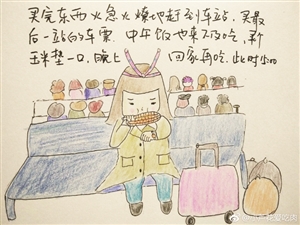 买完东西火急火燎地赶到车站，买最
后一站的车票，中午饭也来不及吃，就
玉米垫一口，晚上　　回家再吃，此时